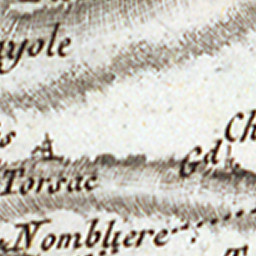 ayole
Ch
Gd
Torsac
Nombliere